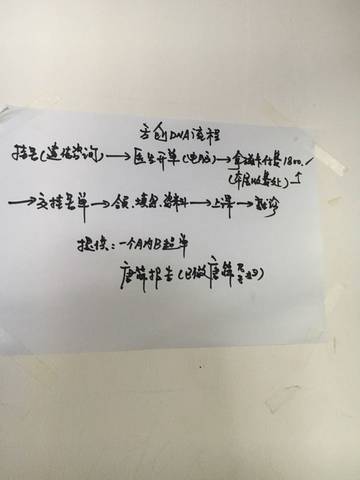 无创DNA流程
挂号(遗传咨询)→医生开单(电脑)→拿磁卡付费1800.
(本层收费处)
→交挂号单→领、填写资料→上课→就诊
提供:一个月内B超单
唐筛报告(已做唐筛